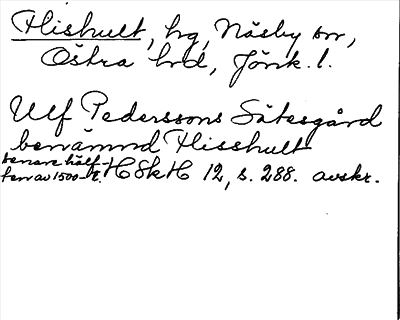 Hishult, hg, Näsby sn,
Östra hrd, Jönk. l.
Ulf Pederssons Sätesgård
benämnd Hisshult
senare hälf-
ten av 1500-t. HSkH 12, s. 288. avskr.